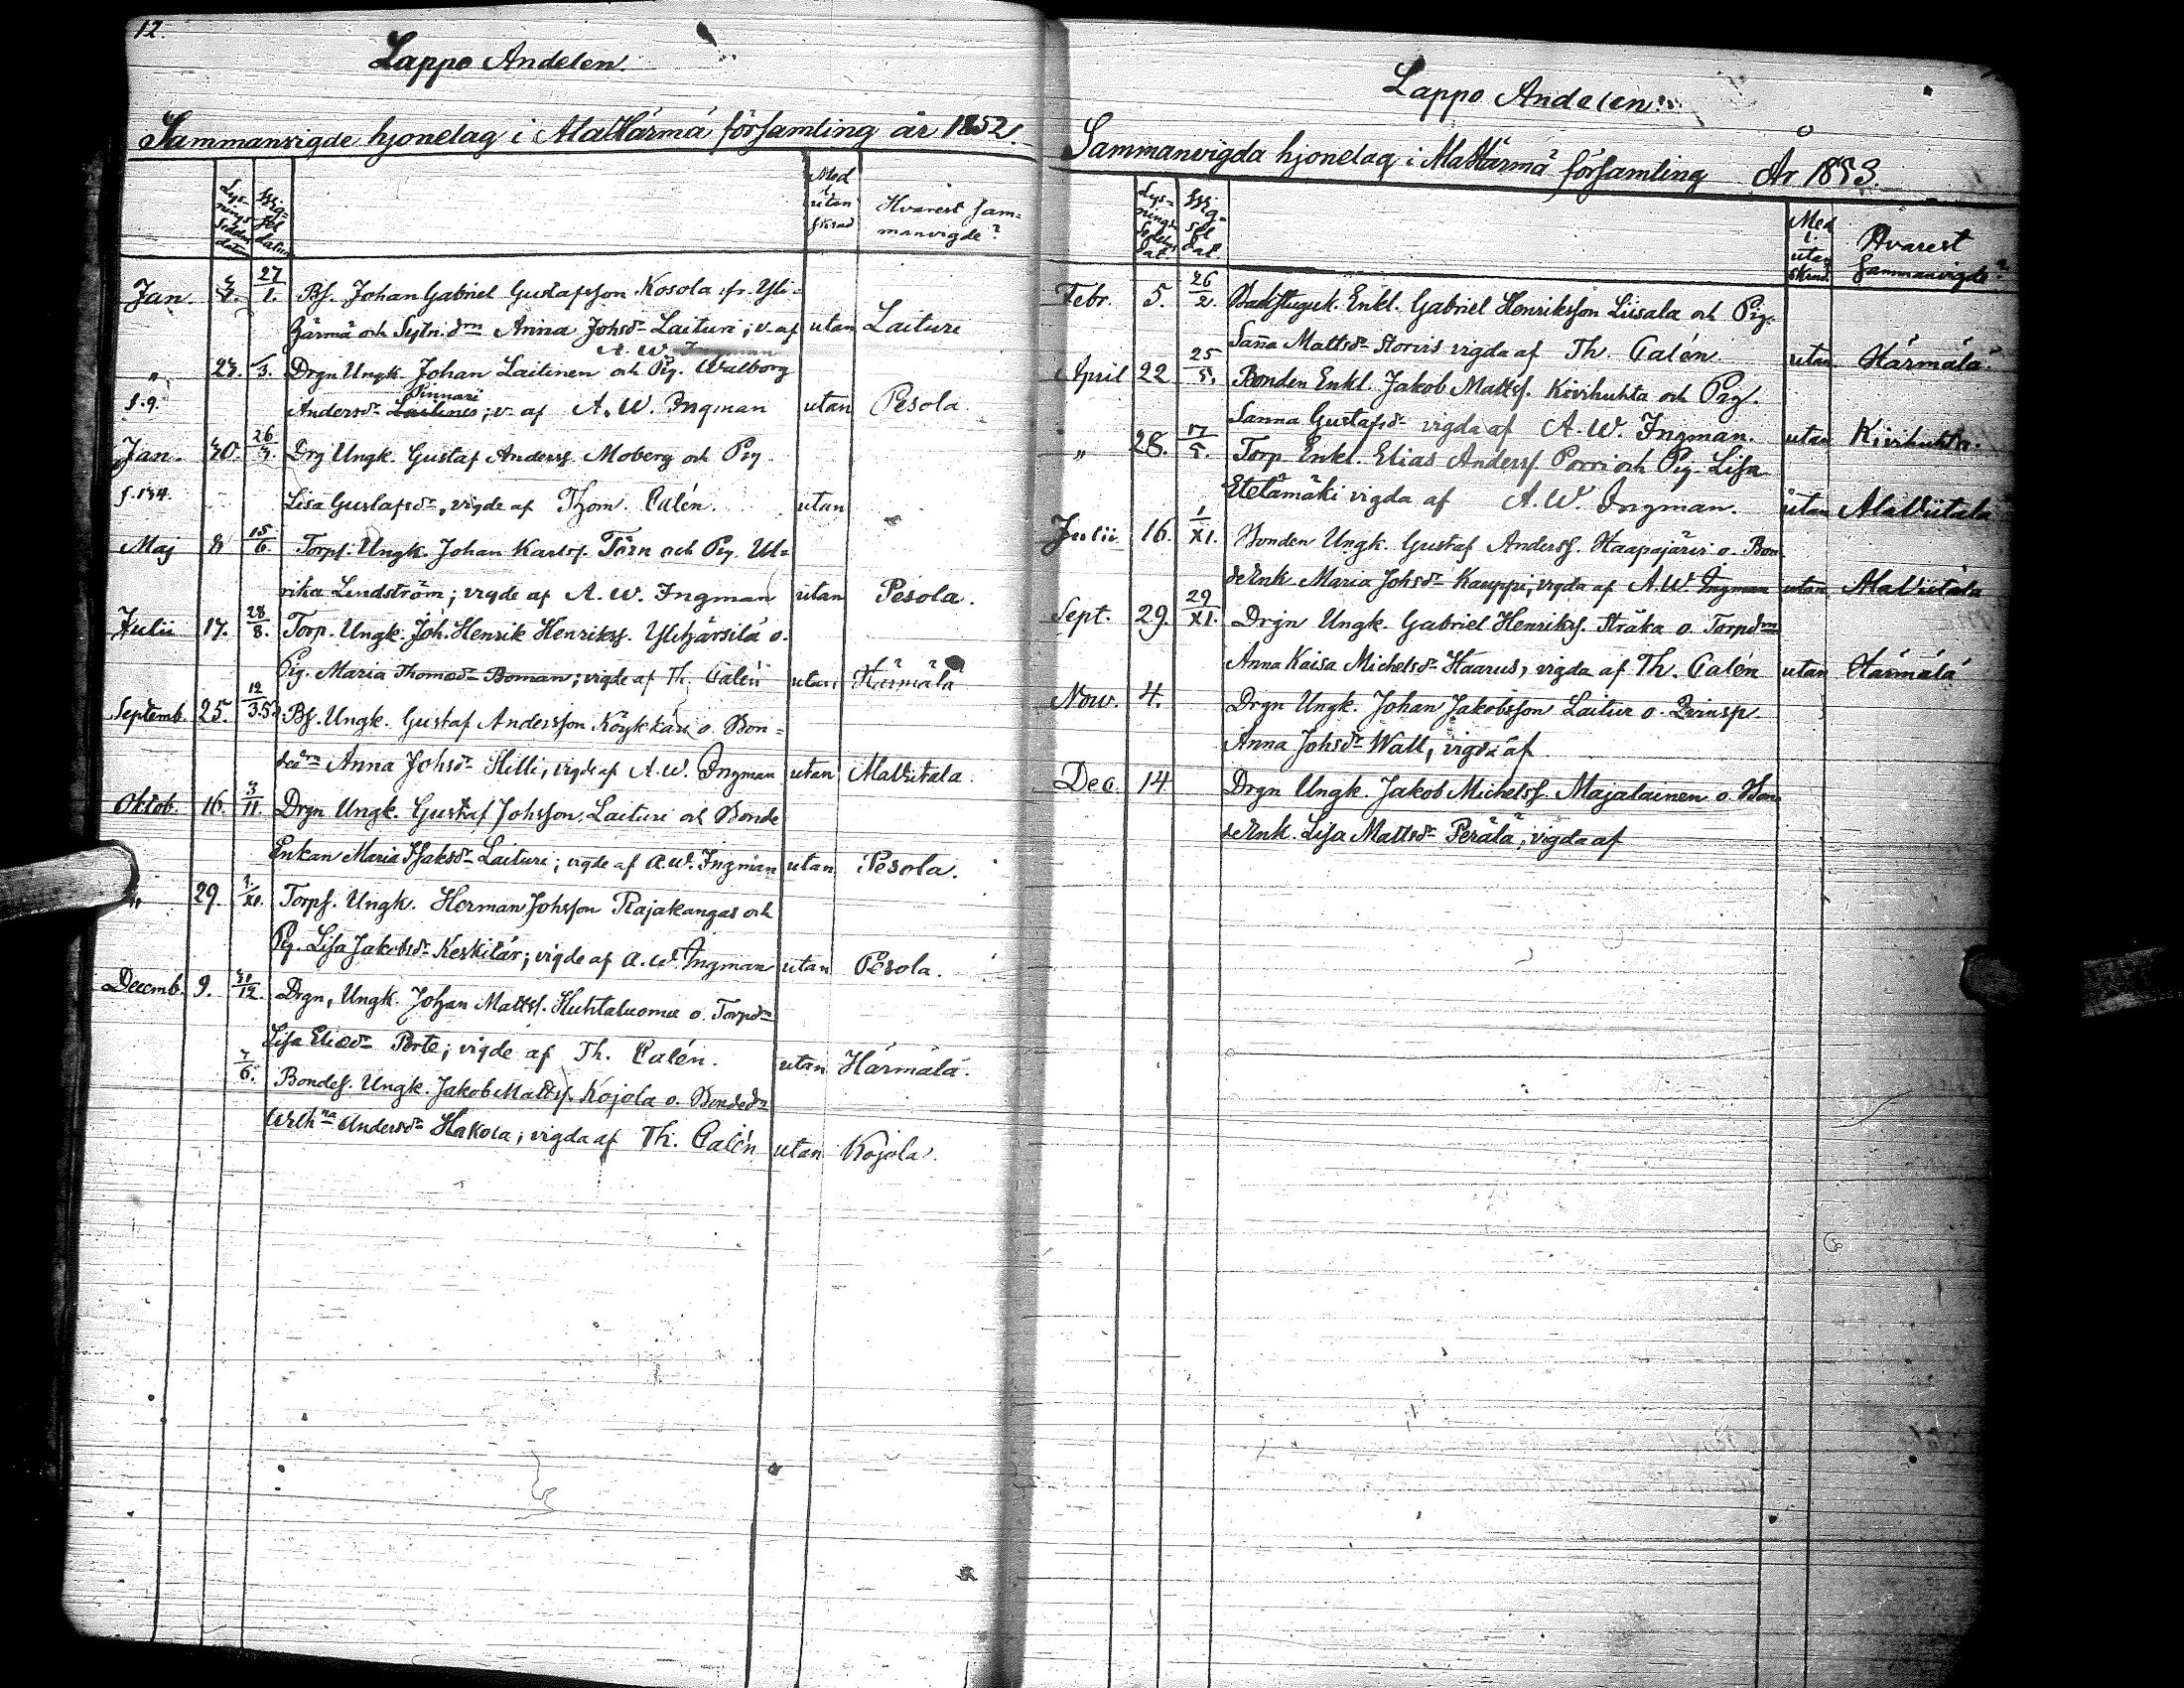 12.
Lappo Andelen.
Sammanvigde hjonelag i AlaHärmä församling år 1852.
Lysnings Sedelns datum
Vigsel datum
Med l. utan förord
Hvarest sammanvigde?
Jan. 27/1. Bs. Johan Gabriel Gustafsson Kosola fr. Yli-
härmä och Sytn.dr Anna Johsdr Laituri; v. af utan Laituri
A. W. Ingman
" 23. /3. Drgn Ungk. Johan Laitinen och Pig. Walborg
Pinnari
f. 9. Andersdr Laitinen; v. af A. W. Ingman utan Pesola.
Jan. 30. 26/3. Drg Ungk. Gustaf Anderss. Moberg och Pig.
f. 134. Lisa Gustafsdr, vigde af Thom. Calén. utan
Maj 8 15/6. Torps. Ungk. Johan Karlss. Törn och Pig. Ul-
rika Lindström; vigde af A. W. Ingman utan Pesola.
Julii 17. 28/8. Torp. Ungk. Joh. Henrik Henrikss. Ylihärsilä o.
Pig. Maria Thomasdr Boman; vigde af Th. Calén utan Härmälä
Septemb. 25. 12/3.53 Bs. Ungk. Gustaf Andersson Köykkäri o. Bon-
dedr Anna Johsdr Hilli, vigde af A. W. Ingman utan AlaViitala.
Oktob. 16. 3/11. Drgn Ungk. Gustaf Johsson Laituri och Bonde
Enkan Maria Isaksdr Laituri; vigde af A. W. Ingman utan Pesola.
" 29. /XI. Torps. Ungk. Herman Johsson Rajakangas och
Pig. Lisa Jakobsdr Keskitär; vigde af A. W. Ingman utan Pesola.
Decemb. 9. 31/12. Drgn, Ungk. Johan Matts. Huhtaluoma o. Torpdr
Lisa Eliasdr Porte; vigde af Th. Calén. utan Härmälä.
/6. Bondes. Ungk. Jakob Mattss. Kojola o. Bondedr
Wilhna Andersdr Hakola; vigda af Th. Calén utan Kojola.
Lappo Andelen.
Sammanvigda hjonelag i AlaHärmä församling År 1853.
Lysnings Sedelns Dat.
Vigsel Dat.
Med l. utan förord
Hvarest Sammanvigde?
Febr. 5. 26/2. Backstuguk. Enkl. Gabriel Henriksson Liisala och Pig.
Sanna Mattsdr Storvis vigda af Th. Calén. utan Härmälä.
April 22 25/5. Bonden Enkl. Jakob Mattss. Kivihuhta och Pig.
Sanna Gustafsdr vigda af A. W. Ingman. utan Kivihuhta.
" 28. 17/5. Torp. Enkl. Elias Anderss. Porri och Pig. Lisa
Etelämäki vigda af A. W. Ingman. utan AlaViitala
Julii 16. 1/XI. Bonden Ungk. Gustaf Anderss. Haapajärvi o. Bon
deEnk. Maria Johsdr Kauppi, vigda af A. W. Ingman utan AlaViitala
Sept. 29. 29/XI. Drgn Ungk. Gabriel Henrikss. Stråka o. Torpdr
Anna Kaisa Michelsdr Haarus, vigda af Th. Calén utan Härmälä
Nov. 4. Drgn Ungk. Johan Jakobsson Laituri o. Qvinsp.
Anna Johsdr Wall, vigda af
Dec. 14 Drgn Ungk. Jakob Michelss. Majalainen o. Bon
deEnk. Lisa Mattsdr Perälä, vigda af